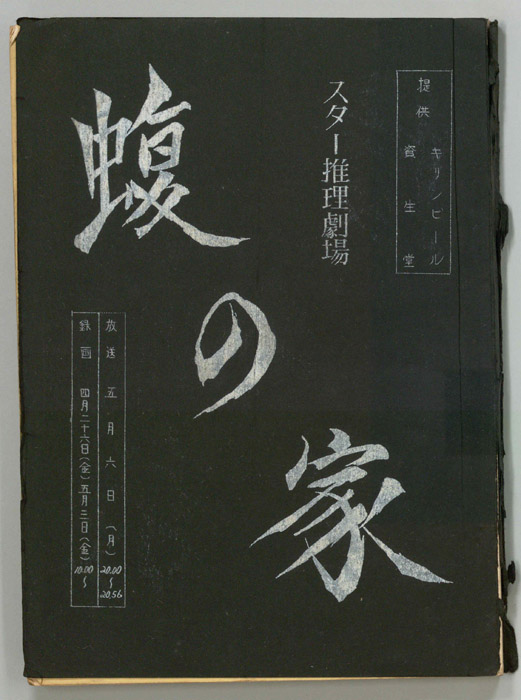 提供
キリンビール
資生堂
スター推理劇場
蝮の家
放送 五月六日(月) 20.00〜20.56
録画 四月二十六日(金)五月三日(金) 10.00〜